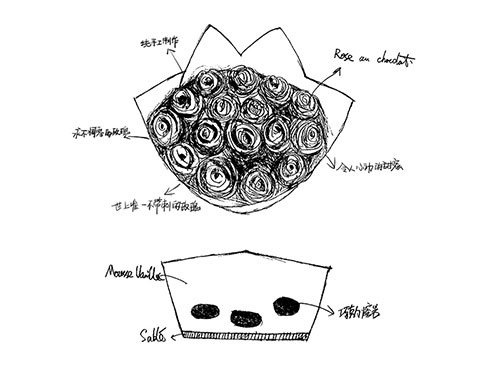 纯手工制作
Rose au chocolat
永不凋零的玫瑰
令人心动的甜蜜
世上唯一不带刺的玫瑰
Mousse Vanille
Sablé